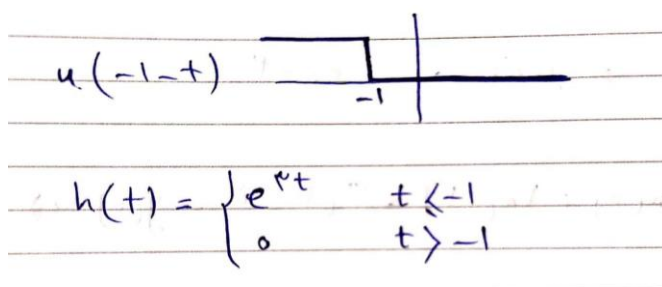 u(-1-t)
-1
h(t) = { e^۲t t ⩽ -1
0 t > -1